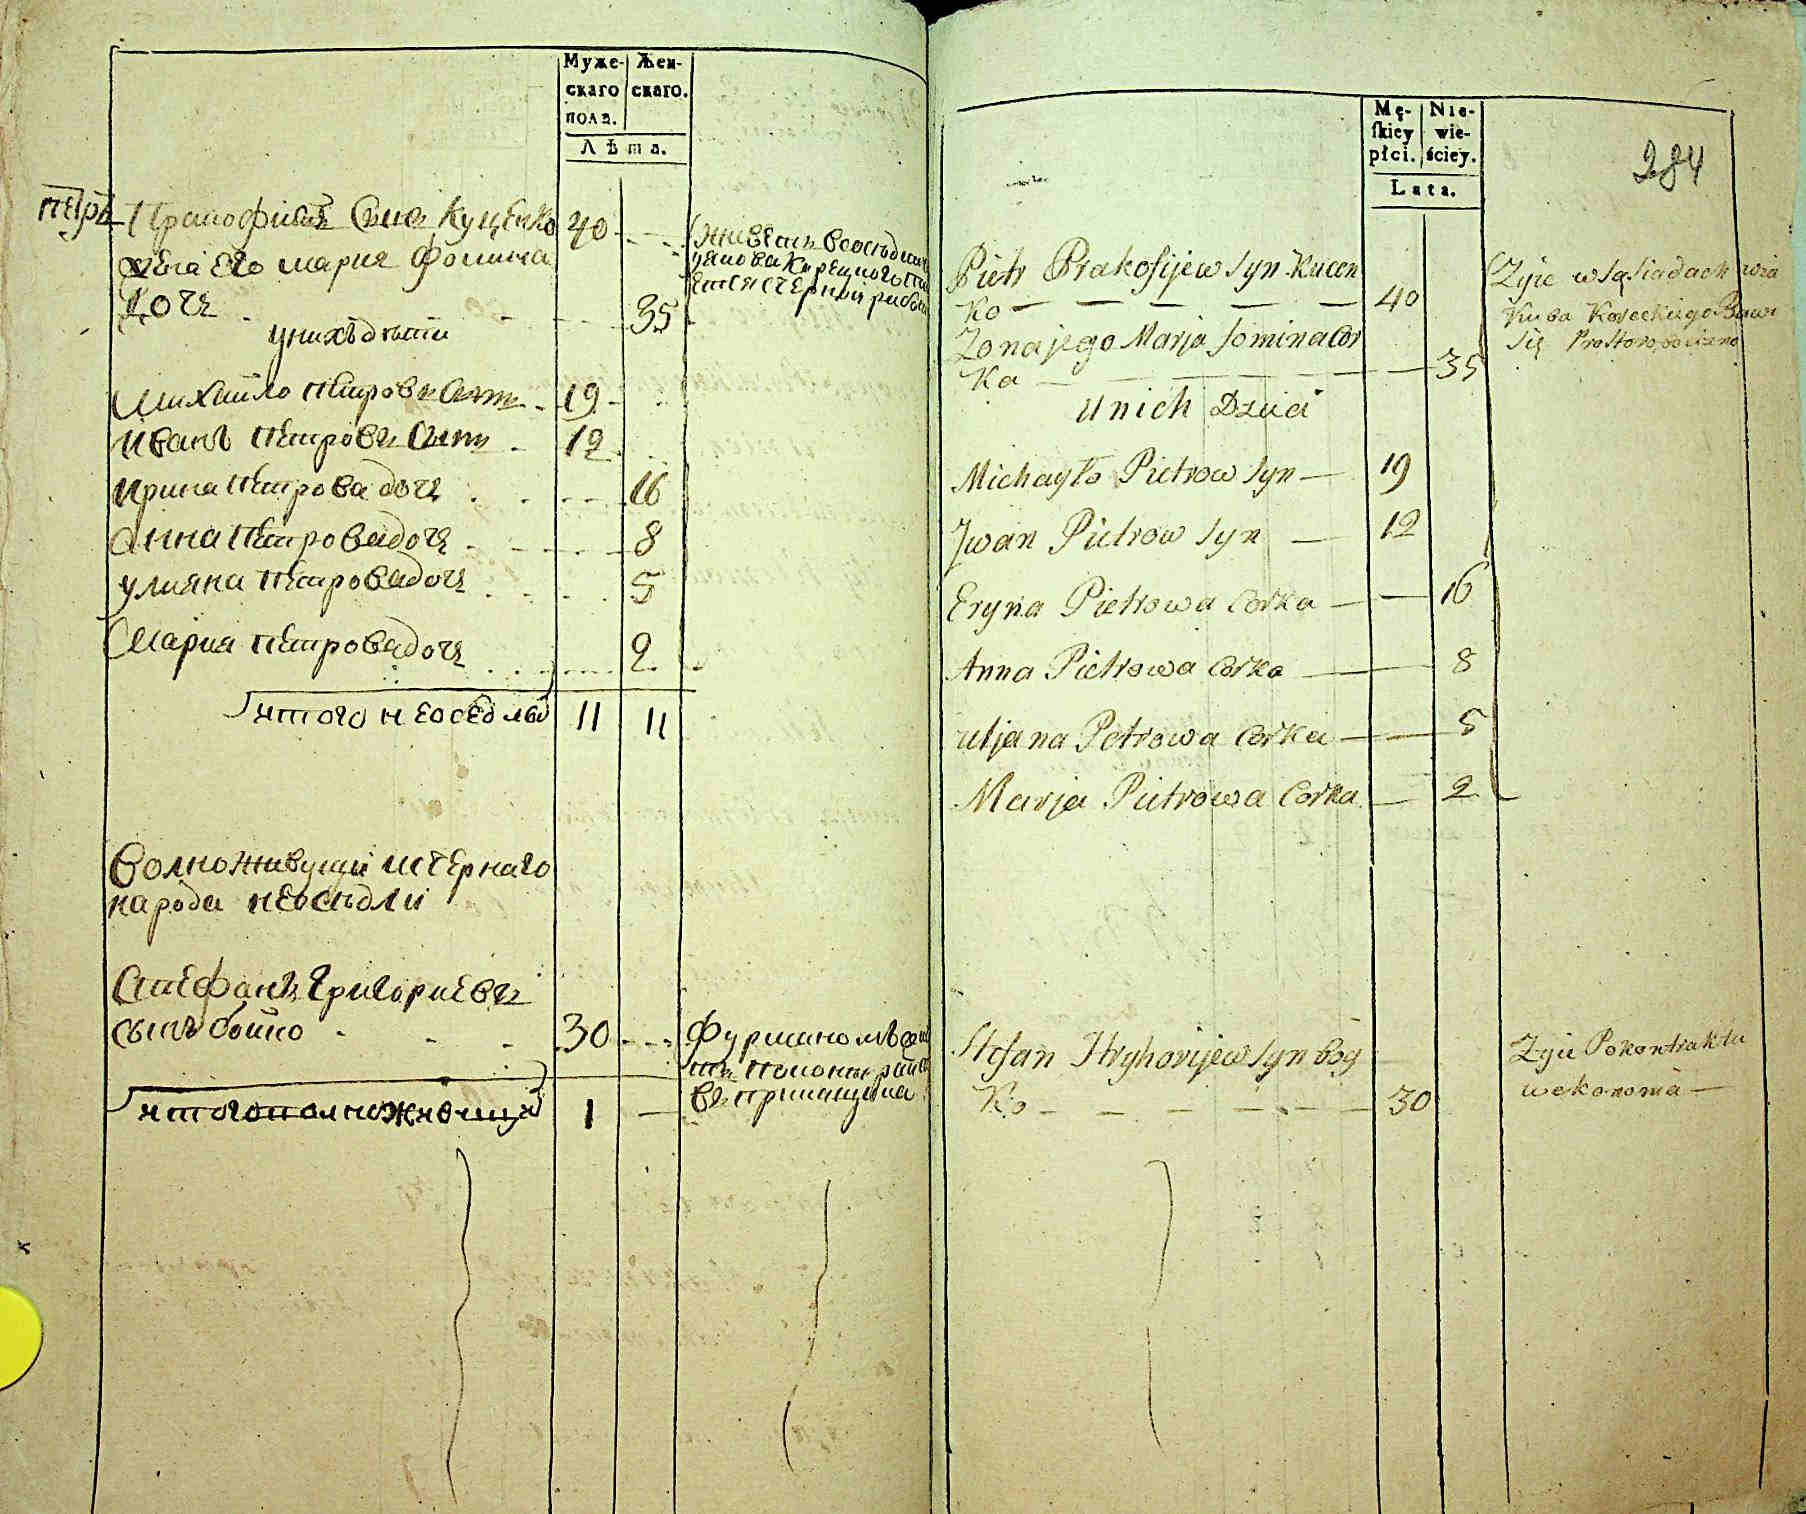 Муже-
скаго
пола.
Жен-
скаго.
Лѣта.
Петръ Пракофиевъ Сынъ Куценко 40
жена Его мария Фомина
Дочь 35
у нихъ дѣти
Михайло Петровъ Сынъ 19
Иванъ Петровъ Сынъ 12
Ирина Петрова дочь 16
Анна Петрова дочь 8
улияна Петрова дочь 5
Мария Петрова дочь 2
итого неоседлы 11 11
Волноживущи и чернаго
народа неоседли
Стефанъ Григориевъ
сынъ бойко 30
итого волноживущи 1
живетъ в соседихъ
Фурманомъ
Mę-
ſkiey
płci.
Nie-
wie-
ściey.
Lata.
284
Piotr Prakofijew syn Kucen
ko 40
Zona jego Marja Fomina Cor
ka 35
u nich Dzieci
Michayło Pietrow syn 19
Jwan Pietrow syn 12
Eryna Pietrowa Corka 16
Anna Pietrowa Corka 8
uljana Petrowa Corka 5
Marja Pietrowa Corka 2
Zyie w sąsiadach
Kuba
się
Stefan Hryhorijew syn boy
ko 30
Zyie Po kontraktu
w ekonoma